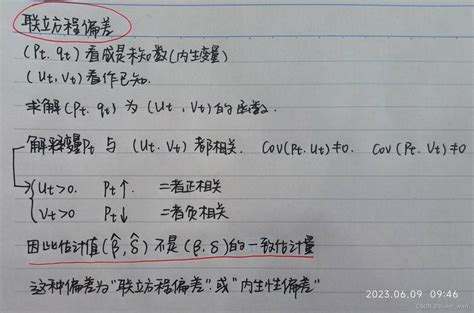 联立方程偏差
(Pt. qt) 看成是未知数(内生变量)
(Ut, Vt) 看作已知.
求解(Pt. qt) 为 (Ut, Vt) 的函数.
解释变量Pt 与 (Ut. Vt) 都相关. Cov(Pt. Ut)≠0. Cov (Pt. Vt)≠0
Ut>0. Pt↑. 二者正相关
Vt>0 Pt↓ 二者负相关
因此估计值(β̂, δ̂) 不是 (β, δ)的一致估计量
这种偏差为"联立方程偏差"或"内生性偏差"
2023.06.09 09:46